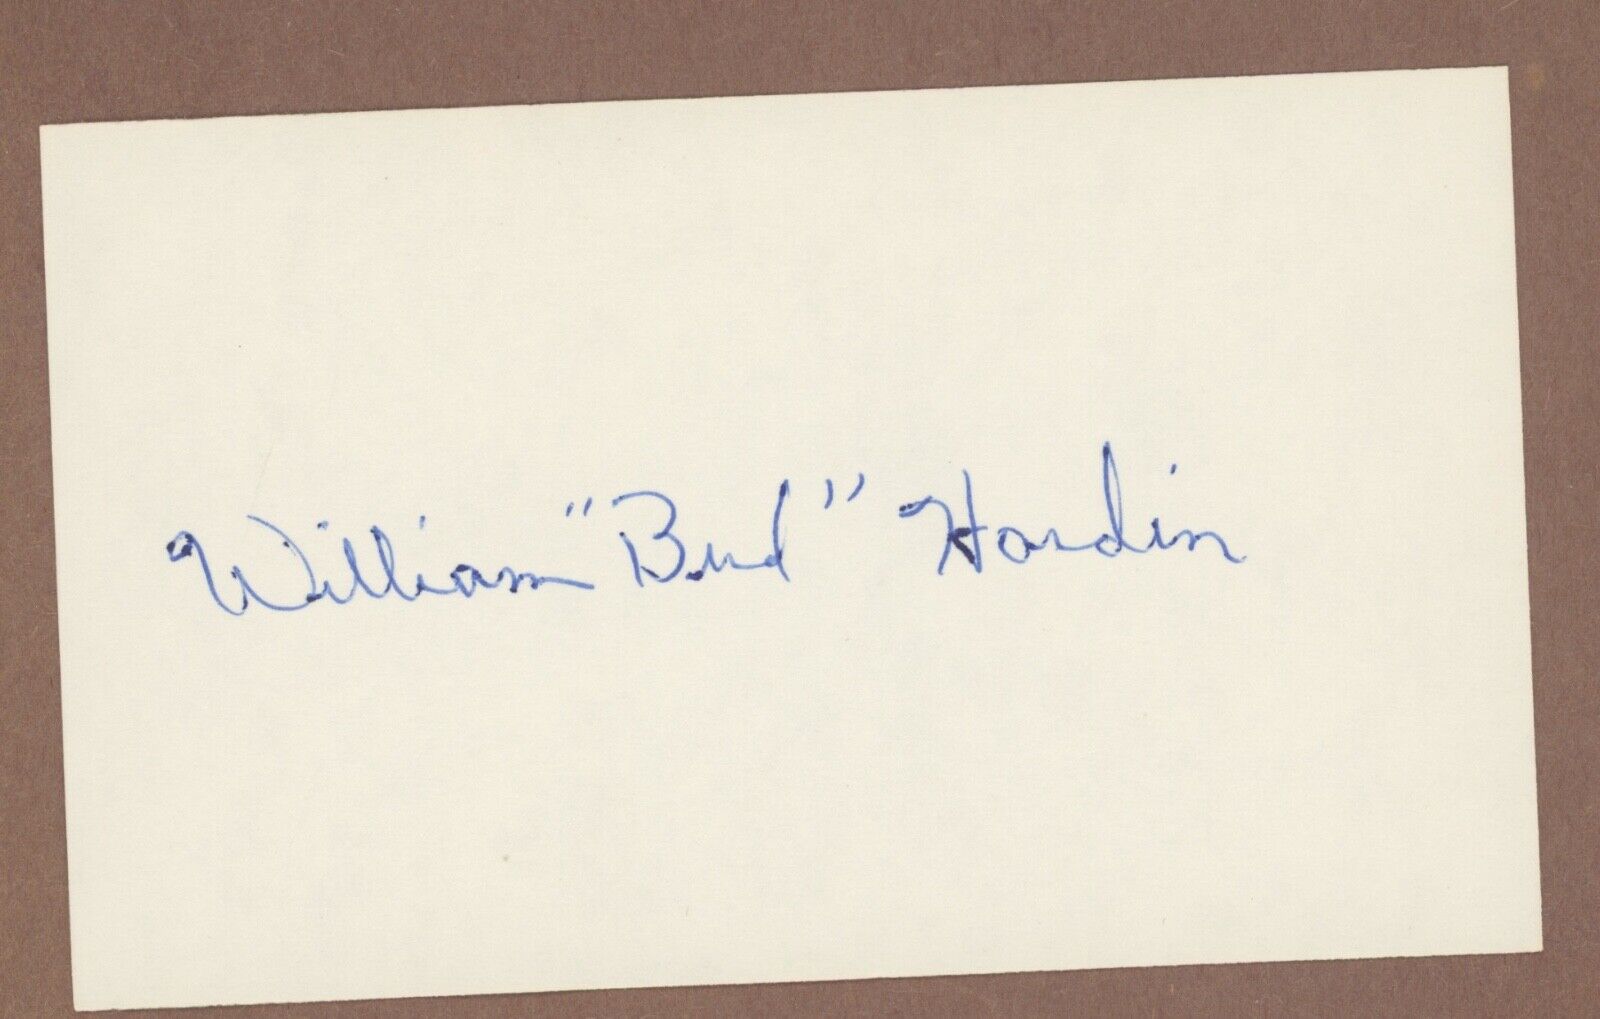 William "Bud" Hardin